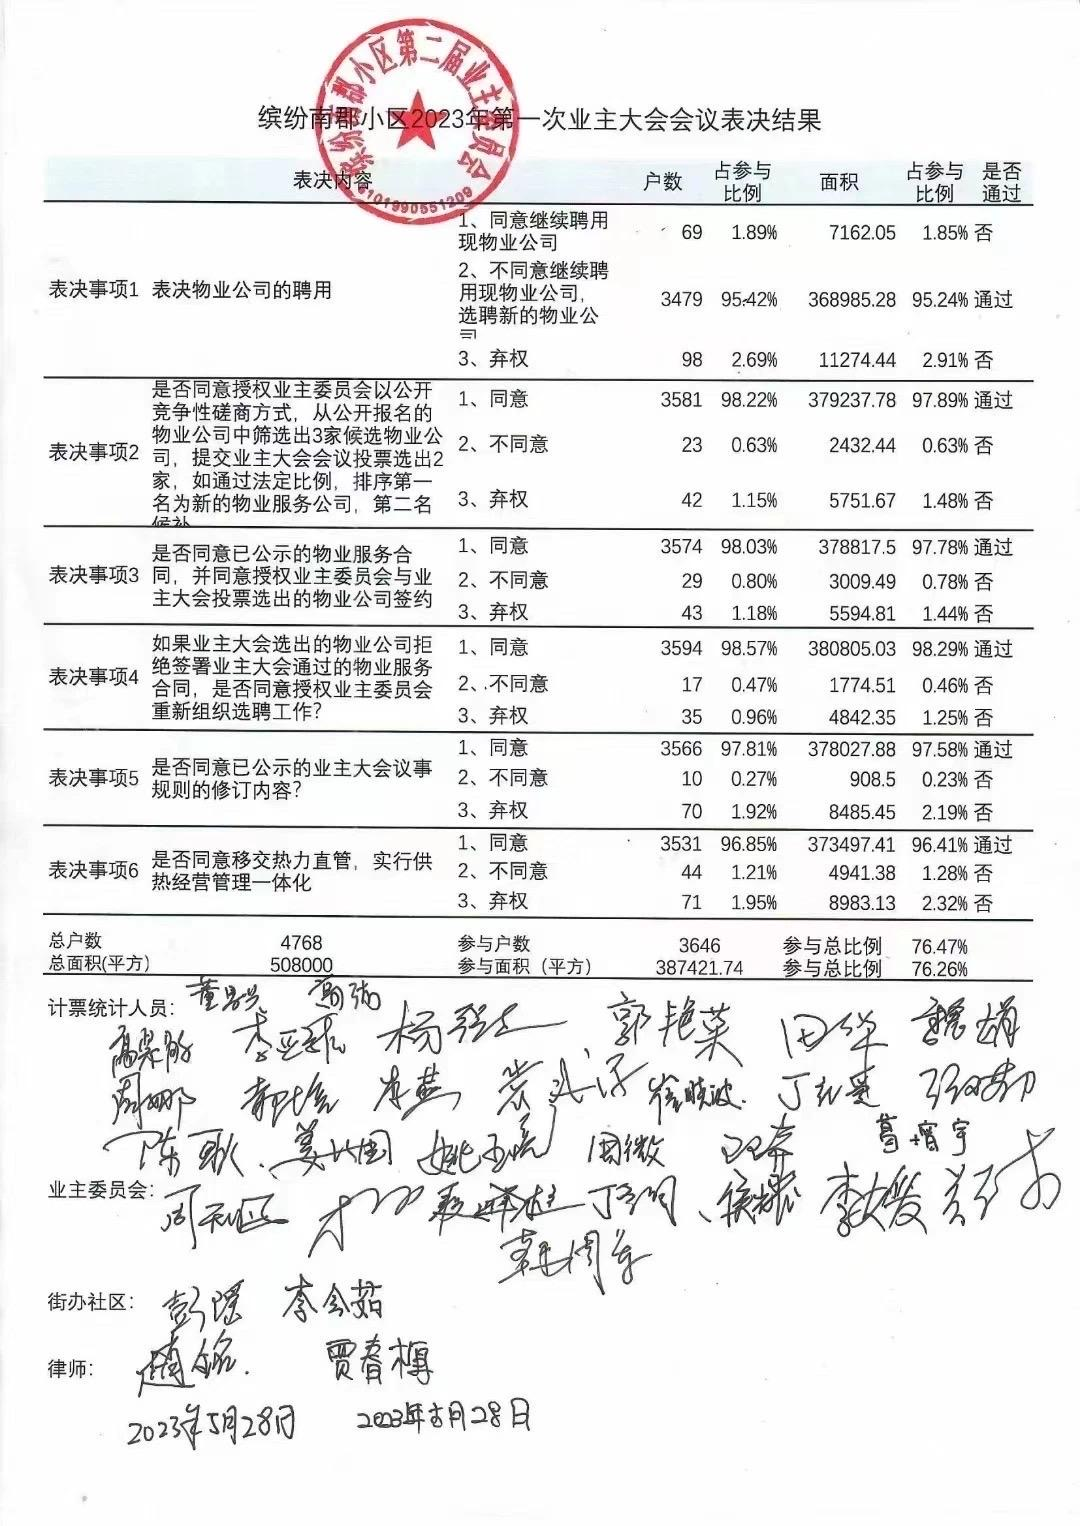 缤纷南郡小区第二届业主委员会
6101990551209
缤纷南郡小区2023年第一次业主大会会议表决结果
表决内容 户数 占参与比例 面积 占参与比例 是否通过
表决事项1 表决物业公司的聘用
1、同意继续聘用现物业公司 69 1.89% 7162.05 1.85% 否
2、不同意继续聘用现物业公司，选聘新的物业公司 3479 95.42% 368985.28 95.24% 通过
3、弃权 98 2.69% 11274.44 2.91% 否
表决事项2 是否同意授权业主委员会以公开竞争性磋商方式，从公开报名的物业公司中筛选出3家候选物业公司，提交业主大会会议投票选出2家，如通过法定比例，排序第一名为新的物业服务公司，第二名候补
1、同意 3581 98.22% 379237.78 97.89% 通过
2、不同意 23 0.63% 2432.44 0.63% 否
3、弃权 42 1.15% 5751.67 1.48% 否
表决事项3 是否同意已公示的物业服务合同，并同意授权业主委员会与业主大会投票选出的物业公司签约
1、同意 3574 98.03% 378817.5 97.78% 通过
2、不同意 29 0.80% 3009.49 0.78% 否
3、弃权 43 1.18% 5594.81 1.44% 否
表决事项4 如果业主大会选出的物业公司拒绝签署业主大会通过的物业服务合同，是否同意授权业主委员会重新组织选聘工作？
1、同意 3594 98.57% 380805.03 98.29% 通过
2、不同意 17 0.47% 1774.51 0.46% 否
3、弃权 35 0.96% 4842.35 1.25% 否
表决事项5 是否同意已公示的业主大会议事规则的修订内容？
1、同意 3566 97.81% 378027.88 97.58% 通过
2、不同意 10 0.27% 908.5 0.23% 否
3、弃权 70 1.92% 8485.45 2.19% 否
表决事项6 是否同意移交热力直管，实行供热经营管理一体化
1、同意 3531 96.85% 373497.41 96.41% 通过
2、不同意 44 1.21% 4941.38 1.28% 否
3、弃权 71 1.95% 8983.13 2.32% 否
总户数 4768 参与户数 3646 参与总比例 76.47%
总面积(平方) 508000 参与面积（平方） 387421.74 参与总比例 76.26%
计票统计人员：
郭艳菜 田华
周娜 李燕 崔晓波 丁
陈 姜 周微 葛增宇
业主委员会：
李媛
街办社区： 彭瑶 李会茹
律师： 赵铭 贾春梅
2023年5月28日 2023年5月28日